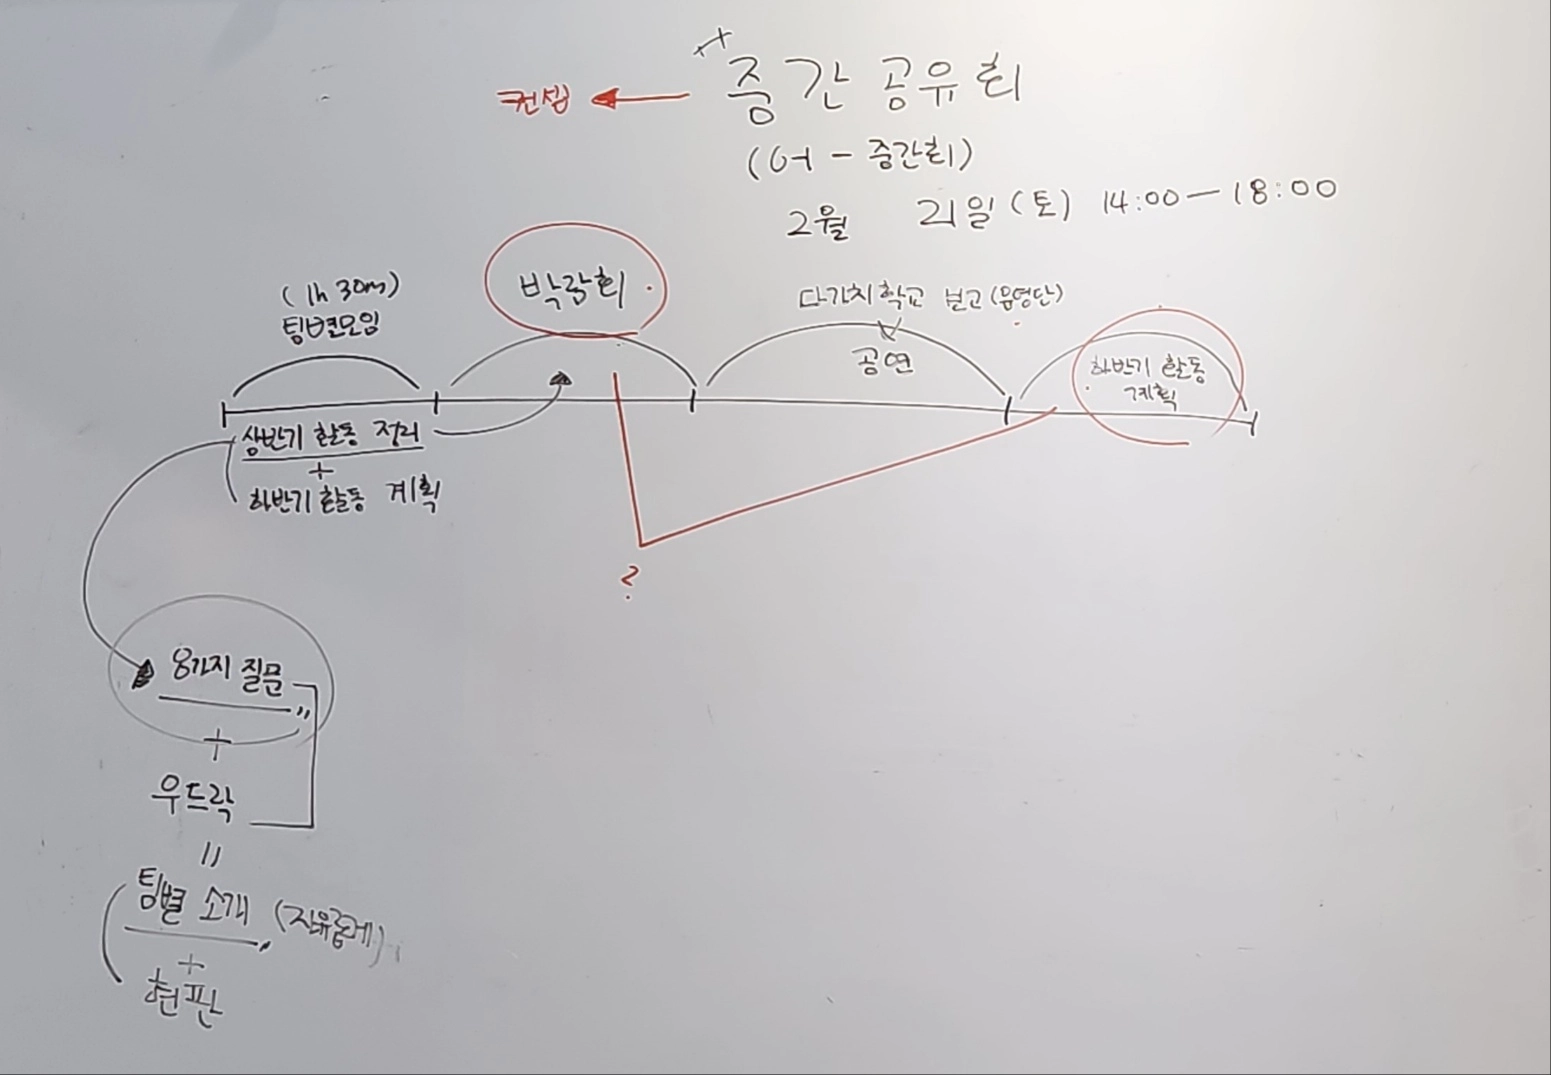 중간 공유회
컨셉
(어 - 중간회)
2월 21일(토) 14:00 - 18:00
(1h 30m)
팀별모임
박람회
다가치학교 보고(음영단)
공연
하반기 활동
계획
상반기 활동 정리
+
하반기 활동 계획
?
8가지 질문
+
우드락
=
팀별 소개 (자유롭게)
+
현판